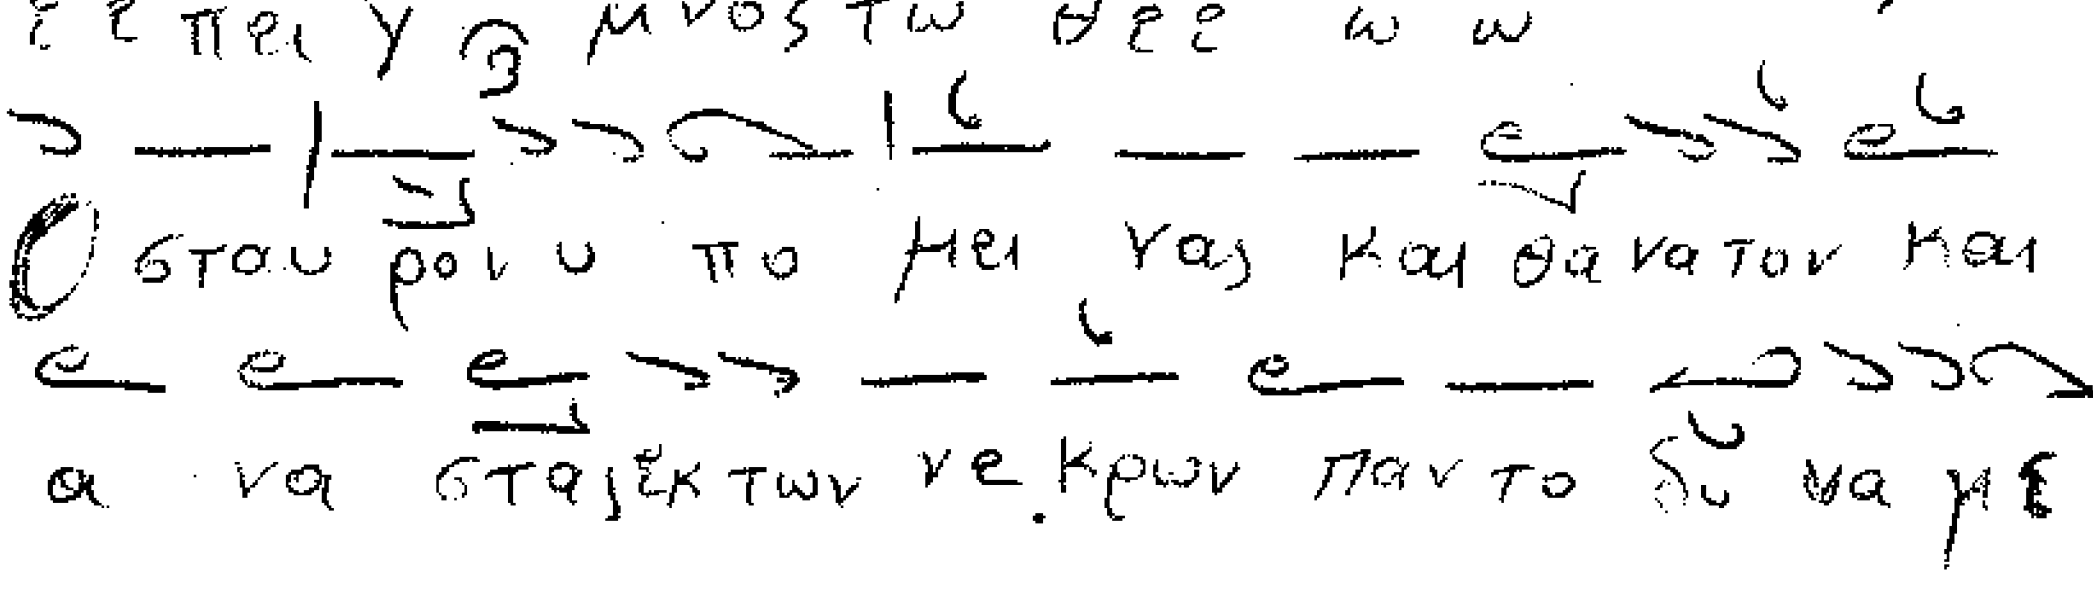 ε ε πει υ μνος τω θε ε ω ω
Ο σταυ ρον υ πο μει νας και θα να τον και
α να στας εκ των νε κρων παν το δυ να με